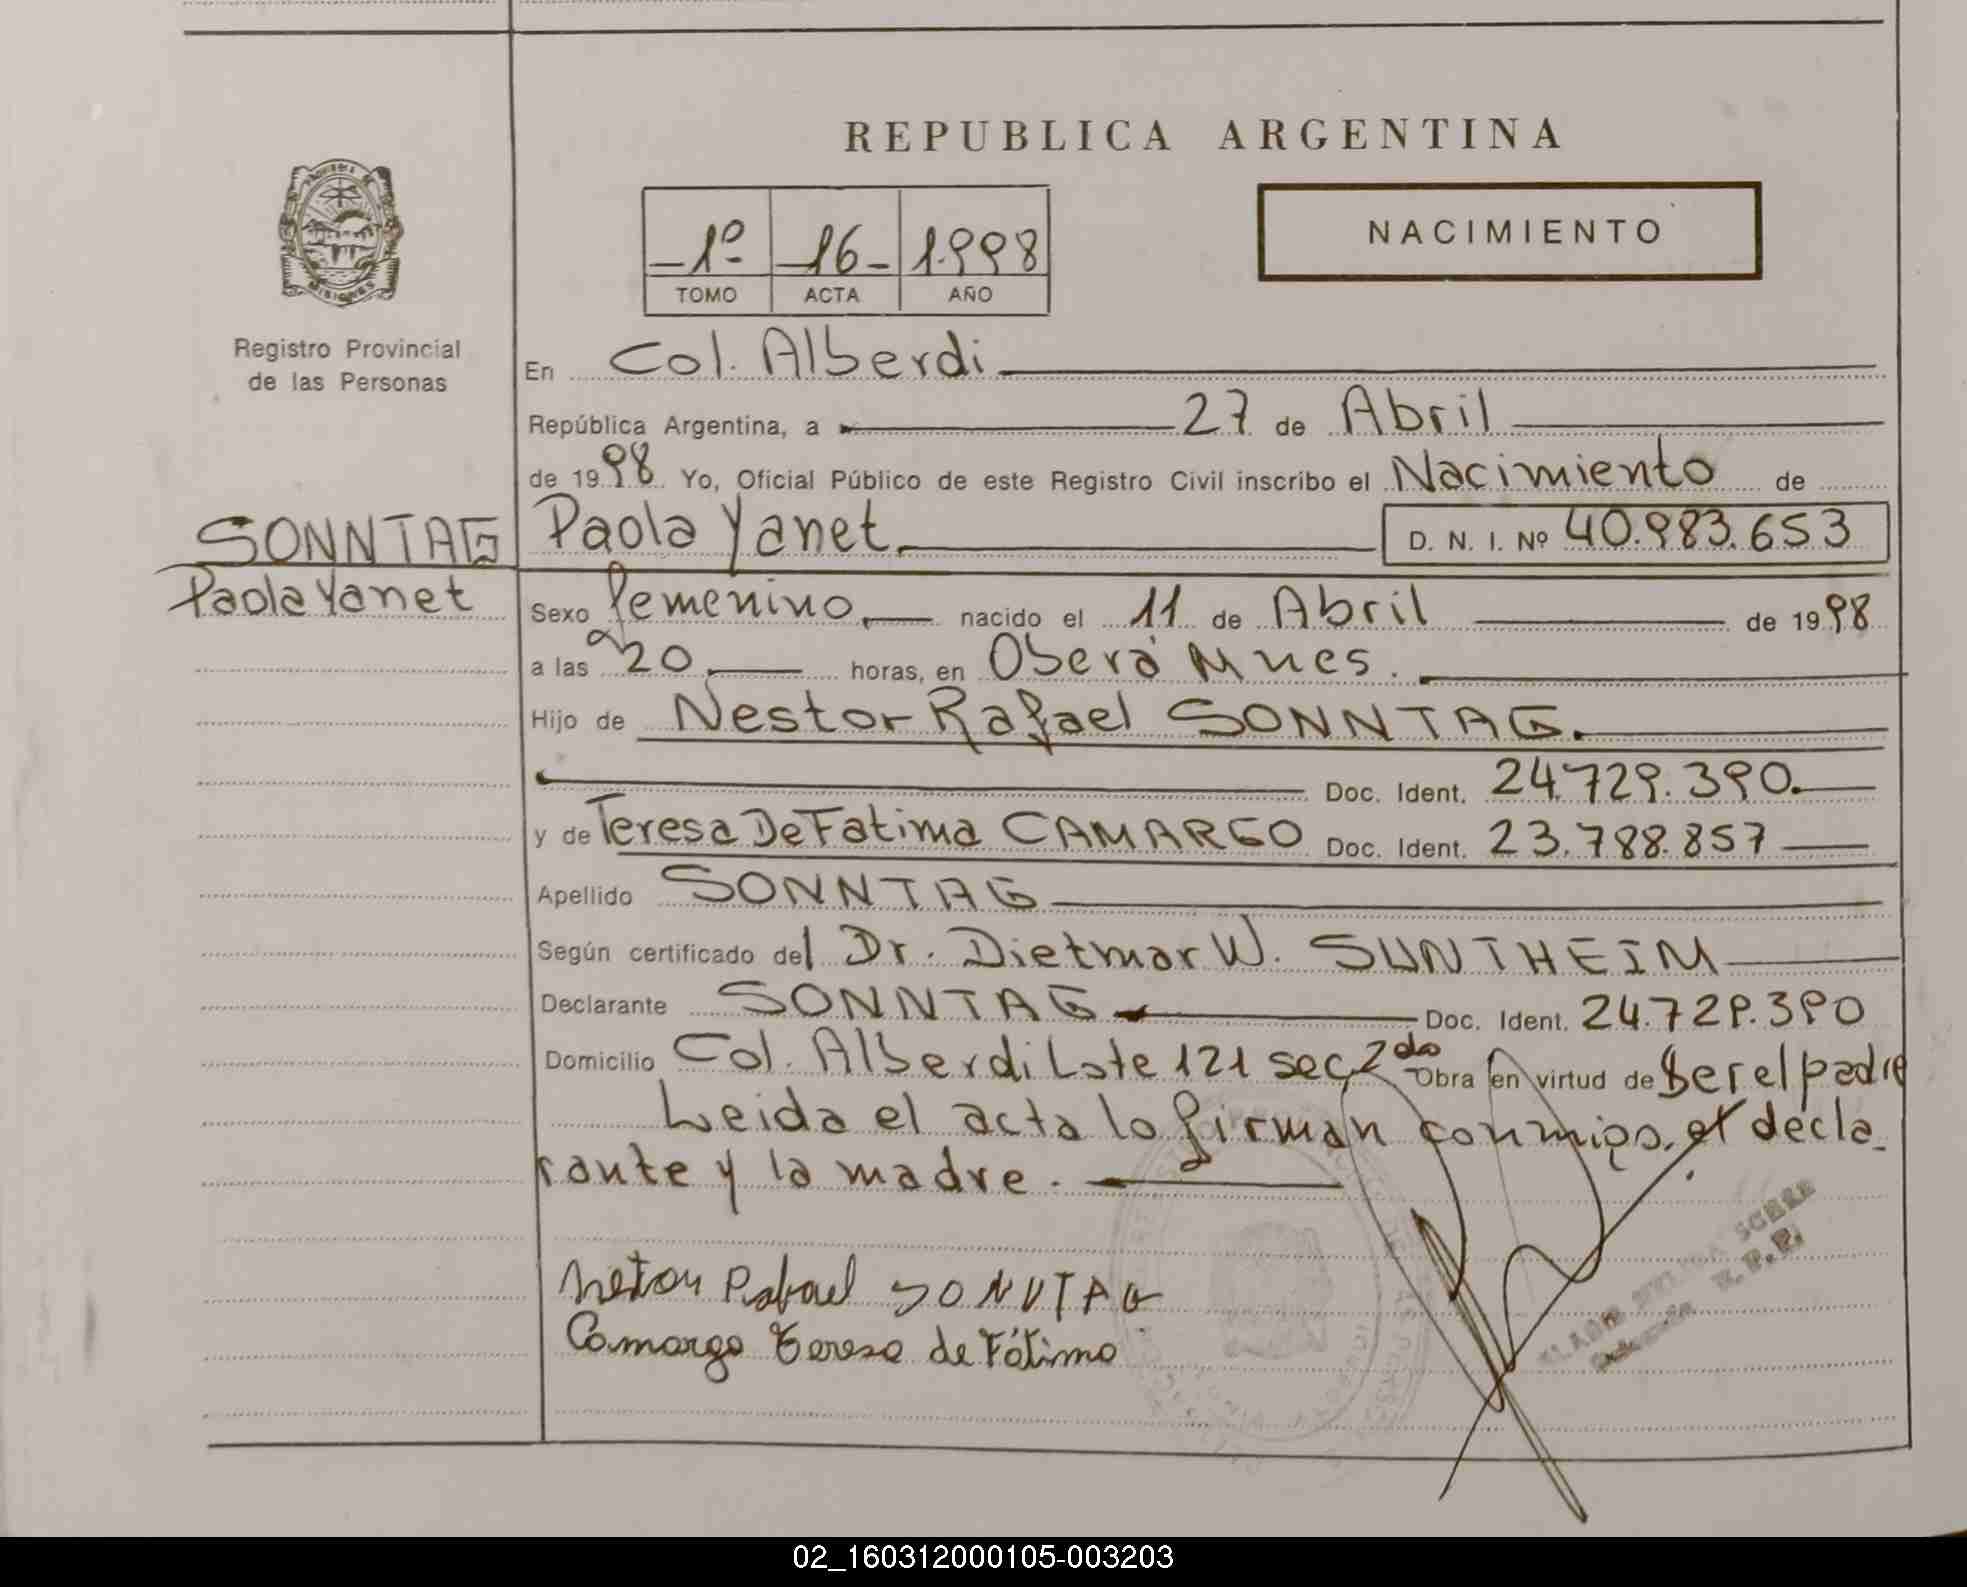 REPUBLICA ARGENTINA
NACIMIENTO
1º 16 1.998
TOMO ACTA AÑO
MISIONES
Registro Provincial
de las Personas
En Col. Alberdi
República Argentina, a 27 de Abril
de 1998 Yo, Oficial Público de este Registro Civil inscribo el Nacimiento de
SONNTAG
Paola Yanet
Paola Yanet D. N. I. Nº 40.983.653
Sexo femenino nacido el 11 de Abril de 1998
a las 20 horas, en Oberá Mnes.
Hijo de Nestor Rafael SONNTAG.
Doc. Ident. 24.729.390.
y de Teresa De Fatima CAMARGO Doc. Ident. 23.788.857
Apellido SONNTAG
Según certificado del Dr. Dietmar W. SUNTHEIM
Declarante SONNTAG Doc. Ident. 24.729.390
Domicilio Col. Alberdi Lote 121 sec, 2do Obra en virtud de Ser el padre
Leida el acta lo firman conmigo, el decla-
rante y la madre.
Nestor Rafael SONNTAG
Camargo Teresa de Fátima
02_160312000105-003203